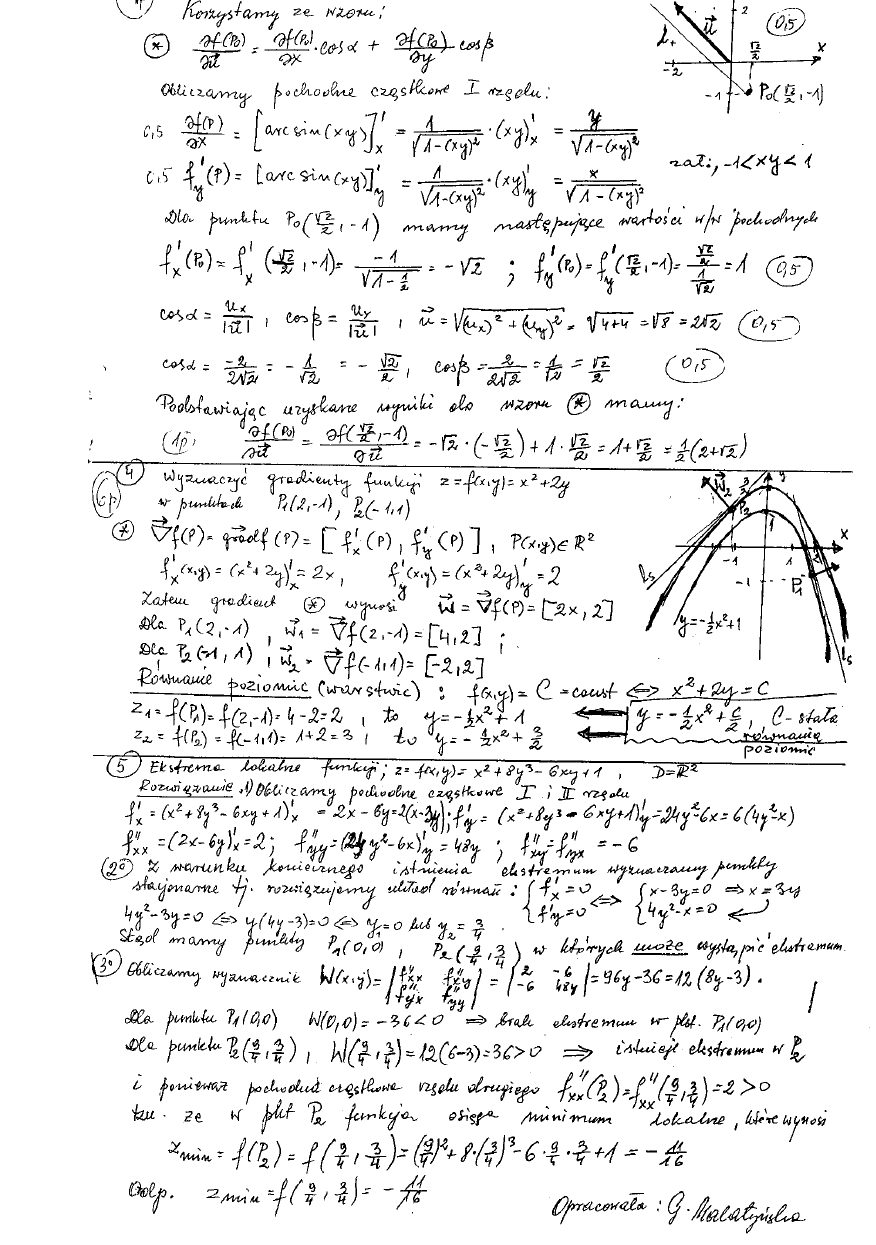 Korzystamy ze wzoru:
(*) ∂f(P₀)/∂u⃗ = ∂f(P₀)/∂x · cosα + ∂f(P₀)/∂y cosβ
2 u⃗ 0,5 l₊ √2/2 x -2 -1 P₀(√2/2, -1)
Obliczamy pochodne cząstkowe I rzędu:
0,5 ∂f(P)/∂x = [arcsin(xy)]'ₓ = 1/√(1-(xy)²) · (xy)'ₓ = y/√(1-(xy)²)
zał:, -1<xy<1
0,5 f'_y(P) = [arcsin(xy)]'_y = 1/√(1-(xy)²) · (xy)'_y = x/√(1-(xy)²)
Dla punktu P₀(√2/2, -1) mamy następujące wartości w/w pochodnych
f'ₓ(P₀) = f'ₓ(√2/2, -1) = -1/√(1-1/2) = -√2 ; f'_y(P₀) = f'_y(√2/2, -1) = (√2/2)/(1/√2) = 1 (0,5)
cosα = uₓ/|u⃗| , cosβ = u_y/|u⃗| , u⃗ = √((uₓ)² + (u_y)²) = √(4+4) = √8 = 2√2 (0,5)
cosα = -2/(2√2) = -1/√2 = -√2/2, cosβ = 2/(2√2) = 1/√2 = √2/2 (0,5)
Podstawiając uzyskane wyniki do wzoru (*) mamy:
(1p) ∂f(P₀)/∂u⃗ = ∂f(√2/2, -1)/∂u⃗ = -√2 · (-√2/2) + 1 · √2/2 = 1+√2/2 = ½(2+√2)
(4) Wyznaczyć gradienty funkcji z=f(x,y)=x²+2y
(6p) w punktach P₁(2,-1), P₂(-1,1)
(*) ∇⃗f(P) = gradf(P) = [f'ₓ(P), f'_y(P)], P(x,y)∈R²
f'ₓ(x,y) = (x²+2y)'ₓ = 2x, f'_y(x,y) = (x²+2y)'_y = 2
Zatem gradient (*) wynosi W⃗ = ∇⃗f(P) = [2x, 2]
Dla P₁(2,-1) , w⃗₁ = ∇⃗f(2,-1) = [4,2] ;
Dla P₂(-1, 1) , w⃗₂ = ∇⃗f(-1,1) = [-2,2]
W⃗₂ 3/2 y P₂ 1 x -1 1 2 -1 P₁ ls y=-½x²+1 ls
Równanie poziomic (warstwic) : f(x,y) = C = const ⟺ x²+2y=C
z₁=f(P₁)=f(2,-1)=4-2=2 , to y=-½x²+1 ⟸ y=-½x²+C/2, C-stała
z₂=f(P₂)=f(-1,1)=1+2=3 , to y=-½x²+3/2 ⟸ równania poziomic
(5) Ekstrema lokalne funkcji; z=f(x,y)=x²+8y³-6xy+1 , D=R²
Rozwiązanie 1) Obliczamy pochodne cząstkowe I i II rzędu
f'ₓ = (x²+8y³-6xy+1)'ₓ = 2x-6y=2(x-3y); f'_y = (x²+8y³-6xy+1)'_y=24y²-6x=6(4y²-x)
f''ₓₓ = (2x-6y)'ₓ=2; f''_yy=(24y²-6x)'_y = 48y ; f''ₓy=f''yₓ = -6
(2°) Z warunku koniecznego istnienia ekstremum wyznaczamy punkty
stacjonarne tj. rozwiązujemy układ równań : { f'ₓ=0 f'_y=0 ⟺ { x-3y=0 ⇒ x=3y 4y²-x=0
4y²-3y=0 ⟺ y(4y-3)=0 ⟺ y₁=0 lub y₂=3/4
Stąd mamy punkty P₁(0,0) , P₂(9/4, 3/4) w których może wystąpić ekstremum.
(3°) Obliczamy wyznacznik W(x,y)=|f''ₓₓ f''ₓy f''yₓ f''yy| = |2 -6 -6 48y| = 96y-36=12(8y-3).
Dla punktu P₁(0,0) W(0,0)=-36<0 ⇒ brak ekstremum w pkt. P₁(0,0)
Dla punktu P₂(9/4, 3/4), W(9/4, 3/4)=12(6-3)=36>0 ⇒ istnieje ekstremum w P₂
i ponieważ pochodna cząstkowa rzędu drugiego f''ₓₓ(P₂)=f''ₓₓ(9/4, 3/4)=2>0
tzn. że w pkt P₂ funkcja osiąga minimum lokalne, które wynosi
z min = f(P₂) = f(9/4, 3/4)=(9/4)²+8·(3/4)³-6·9/4·3/4+1 = -11/16
Odp. z min=f(9/4, 3/4)= -11/16
Opracowała : G. Małatyńska